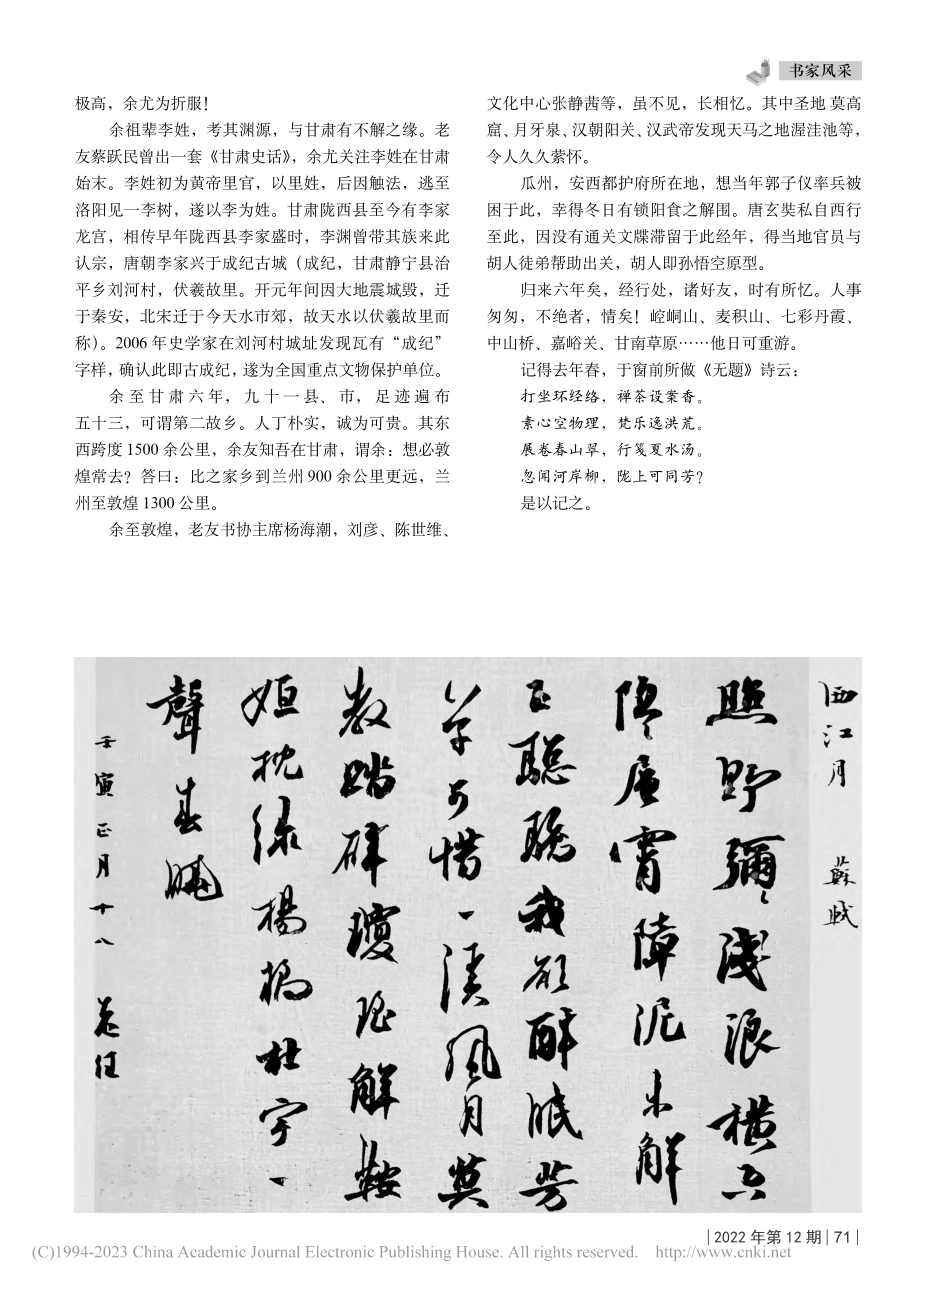 书家风采
极高，余尤为折服！
余祖辈李姓，考其渊源，与甘肃有不解之缘。老
友蔡跃民曾出一套《甘肃史话》，余尤关注李姓在甘肃
始末。李姓初为黄帝里官，以里姓，后因触法，逃至
洛阳见一李树，遂以李为姓。甘肃陇西县至今有李家
龙宫，相传早年陇西县李家盛时，李渊曾带其族来此
认宗，唐朝李家兴于成纪古城（成纪，甘肃静宁县治
平乡刘河村，伏羲故里。开元年间因大地震城毁，迁
于秦安，北宋迁于今天水市郊，故天水以伏羲故里而
称）。2006 年史学家在刘河村城址发现瓦有“成纪”
字样，确认此即古成纪，遂为全国重点文物保护单位。
余至甘肃六年，九十一县、市，足迹遍布
五十三，可谓第二故乡。人丁朴实，诚为可贵。其东
西跨度 1500 余公里，余友知吾在甘肃，谓余：想必敦
煌常去？答曰：比之家乡到兰州 900 余公里更远，兰
州至敦煌 1300 公里。
余至敦煌，老友书协主席杨海潮，刘彦、陈世维、
文化中心张静茜等，虽不见，长相忆。其中圣地 莫高
窟、月牙泉、汉朝阳关、汉武帝发现天马之地渥洼池等，
令人久久萦怀。
瓜州，安西都护府所在地，想当年郭子仪率兵被
困于此，幸得冬日有锁阳食之解围。唐玄奘私自西行
至此，因没有通关文牒滞留于此经年，得当地官员与
胡人徒弟帮助出关，胡人即孙悟空原型。
归来六年矣，经行处，诸好友，时有所忆。人事
匆匆，不绝者，情矣！崆峒山、麦积山、七彩丹霞、
中山桥、嘉峪关、甘南草原……他日可重游。
记得去年春，于窗前所做《无题》诗云：
打坐环经络，禅茶设案香。
素心空物理，梵乐逸洪荒。
展卷春山翠，行笺夏水汤。
忽闻河岸柳，陇上可同芳？
是以记之。
西江月 蘇軾
照野彌〻淺浪橫空
隱〻層霄障泥未解
玉驄驕我欲醉眠芳
草可惜一溪風月莫
教踏碎瓊瑤解鞍
敧枕綠楊橋杜宇一
聲春曉
壬寅正月十八
2022 年第 12 期 71
(C)1994-2023 China Academic Journal Electronic Publishing House. All rights reserved. http://www.cnki.net